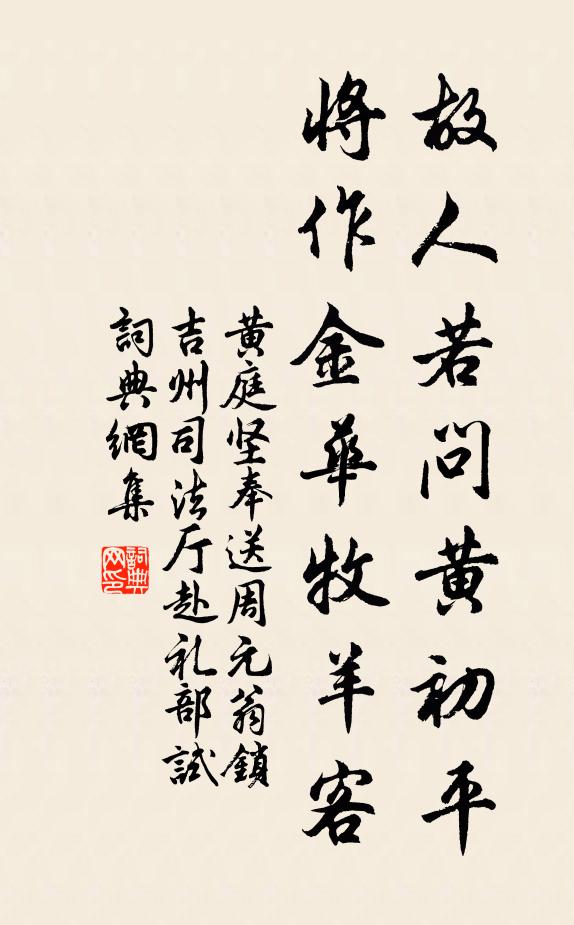 故人若问黄初平
将作金华牧羊客
黄庭坚奉送周元翁鎖
吉州司法厅赴礼部試
詞典網集
詞典网印